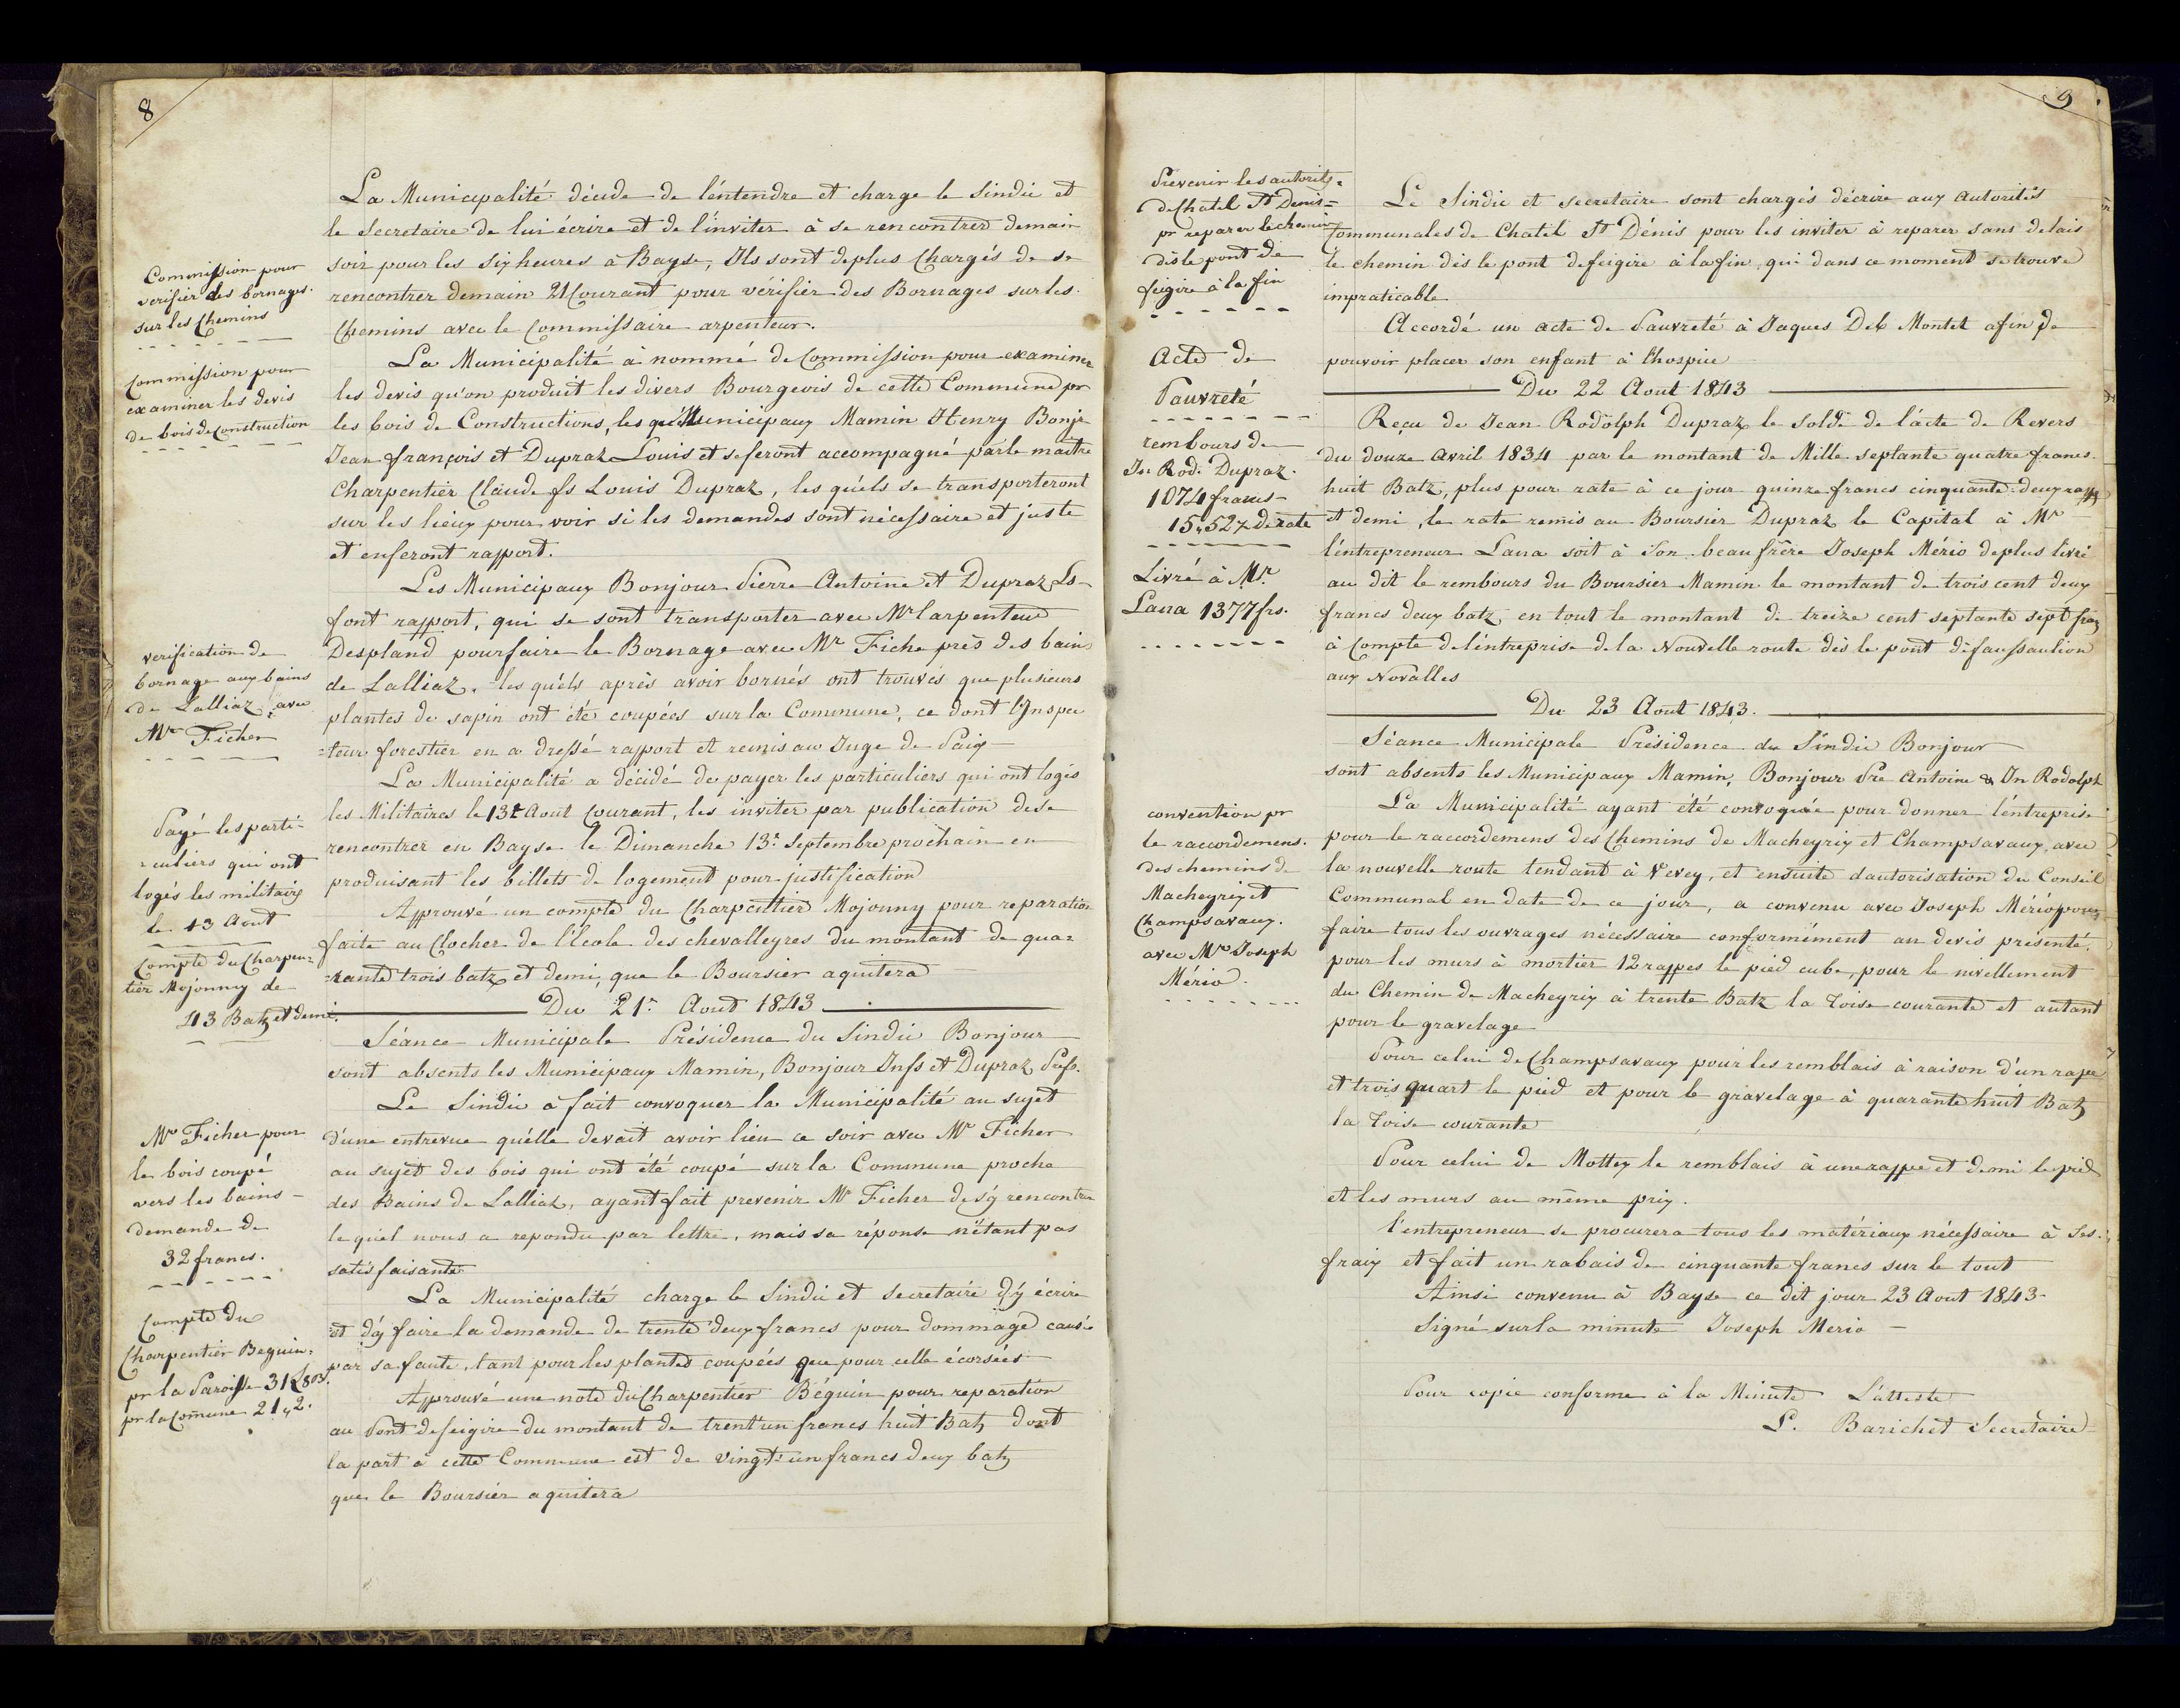 8
La Municipalité décide de l'éntendre et charge le Sindic et
le Secretaire de lui écrire et de l'inviter à se rencontrer demain
soir pour les six heures à Bayse, Ils sont deplus Chargés de se
rencontrer demain 21 Courant pour vérifier des Bornages sur les
Chemins avec le Commissaire arpenteur.
Commission pour
verifier des bornages
sur les Chemins
La Municipalité à nommé de Commission pour examiner
les devis qu'on produit les divers Bourgeois de cette Commune pr
les bois de Constructions, les qu'el Municipaux Mamin Henry Bonjr
Jean françois et Dupraz Louis et seferont accompagné par le maitre
Charpentier Claude fs Louis Dupraz, les quéls se transporteront
sur les lieux pour voir si les demandes sont nécessaire et juste
et enferont rapport.
Commission pour
examiner les devis
de bois de Construction
Les Municipaux Bonjour Pierre Antoine et Dupraz Ls
font rapport, qui se sont transporter avec Mr l'arpenteur
Despland pour faire le Bornage avec Mr Fiche près des bains
de Lalliaz, les quéls après avoir bornés ont trouvés que plusieurs
plantes de sapin ont été coupées sur la Commune, ce dont l'Inspec
=teur forestier en a dressé rapport et remis au Juge de Paix
verification de
bornage aux bains
de Lalliaz, avec
Mr Ficher
La Municipalité a décidé de payer les particuliers qui ont logés
les Militaires le 13e Aout Courant, les inviter par publication de se
rencontrer en Bayse le Dimanche 13e Septembre prochain en
produisant les billets de logement pour justification
Payé les parti=
=culiers qui ont
logés les militaires
le 13 Aout
Approuvé un compte du Charpentier Mojonny pour reparation
faite au Clocher de l'École des chevalleyres du montant de qua=
=rante trois batz et demi, que le Boursier aquitera
Compte du Charpen=
tier Mojonny de
43 Batz et demi.
Du 21e Aout 1843
Séance Municipale Présidence du Sindic Bonjour
sont absents les Municipaux Mamin, Bonjour Jnfs et Dupraz
Le Sindic à fait convoquer la Municipalité au sujet
d'une entrevue qu'élle devait avoir lieu ce soir avec Mr Ficher
au sujet des bois qui ont été coupé sur la Commune proche
des Bains de Lalliaz, ayant fait prevenir Mr Ficher de s'y rencontrer
le quél nous a repondu par lettre, mais sa réponse n'étant pas
satisfaisante
La Municipalité charge le Sindic et secretaire d'y écrire
et d'y faire la demande de trente deux francs pour dommage causée
par sa faute, tant pour les plantes coupées que pour celle écorsées
Mr Ficher pour
le bois coupé
vers les bains
demande de
32 francs.
Approuvé une note du Charpentier Béguin pour reparation
au Pont de feigire du montant de trent'un francs huit Batz dont
la part à cette Commune est de vingt un francs deux batz
que le Boursier aquitera
Compte du
Charpentier Beguin
pr la Paroisse 31 L 8 Bz.
pr la Comune 21,, 2.
9
Le Sindic et secretaire sont chargés décrire aux Autorités
Communales de Chatel St Dénis pour les inviter à reparer sans delais
le chemin dès le pont de feigire à la fin, qui dans ce moment se trouve
impraticable
Prevenir les autorités
de Chatel St Denis=
pr reparer le chemin
dès le pont de
feigire à la fin
Accordé un acte de Pauvreté à Jaques Del Montet afin de
pouvoir placer son enfant à l'hospice
Acte de
Pauvreté
Du 22 Aout 1843
Reçu de Jean Rodolph Dupraz le solde de l'ácte de Revers
du douze Avril 1834 par le montant de Mille septante quatre francs
huit Batz, plus pour rate à ce jour quinze francs cinquante deux rapps
et demi, le rate remis au Boursier Dupraz le Capital à Mr
l'éntrepreneur Lana soit à Son beau frère Joseph Mério deplus livré
au dit le rembours du Boursier Mamin le montant de trois cent deux
francs deux batz en tout le montant de treize cent septante sept fraz
à Compte de l'éntreprise de la Nouvelle route dès le pont defaussaution
aux Novalles
rembours de
Jn Rod. Dupraz
1074 francs
15,, 52½ de rate
Livré à Mr
Lana 1377 frs.
Du 23 Aout 1843.
Séance Municipale Présidence du Sindic Bonjour
sont absents les Municipaux Mamin, Bonjour Pre Antoine & Jn Rodolph
La Municipalité ayant été convoquée pour donner l'éntreprise
pour le raccordemens des Chemins de Macheyrix et Champsavaux, avec
la nouvelle route tendant à Vevey, et ensuite d'autorisation du Conseil
Communal en date de ce jour, a convenu avec Joseph Mério pour
faire tous les ouvrages nécessaire conformément au devis présenté.
pour les murs à mortier 12 rappes le pied cube, pour le nivellement
du Chemin de Macheyrix à trente Batz la toise courante et autant
pour le gravelage
convention pr
le raccordemens.
des chemins de
Macheyrix et
Champsavaux.
avec Mr Joseph
Mério.
Pour celui de Champsavaux pour les remblais à raison d'un rape
et trois quart le pied et pour le gravelage à quarante huit Batz
la Toise courante
Pour celui de Mottex le remblais à une rappe et demi le pied
et les murs au même prix.
l'entrepreneur se procurera tous les matériaux nécessaire à Ses
fraix et fait un rabais de cinquante francs sur le tout
Ainsi convenu à Bayse ce dit jour 23 Aout 1843
Signé sur la minute Joseph Merio
Pour copie conforme à la Minute L'atteste
L. Barichet Secretaire